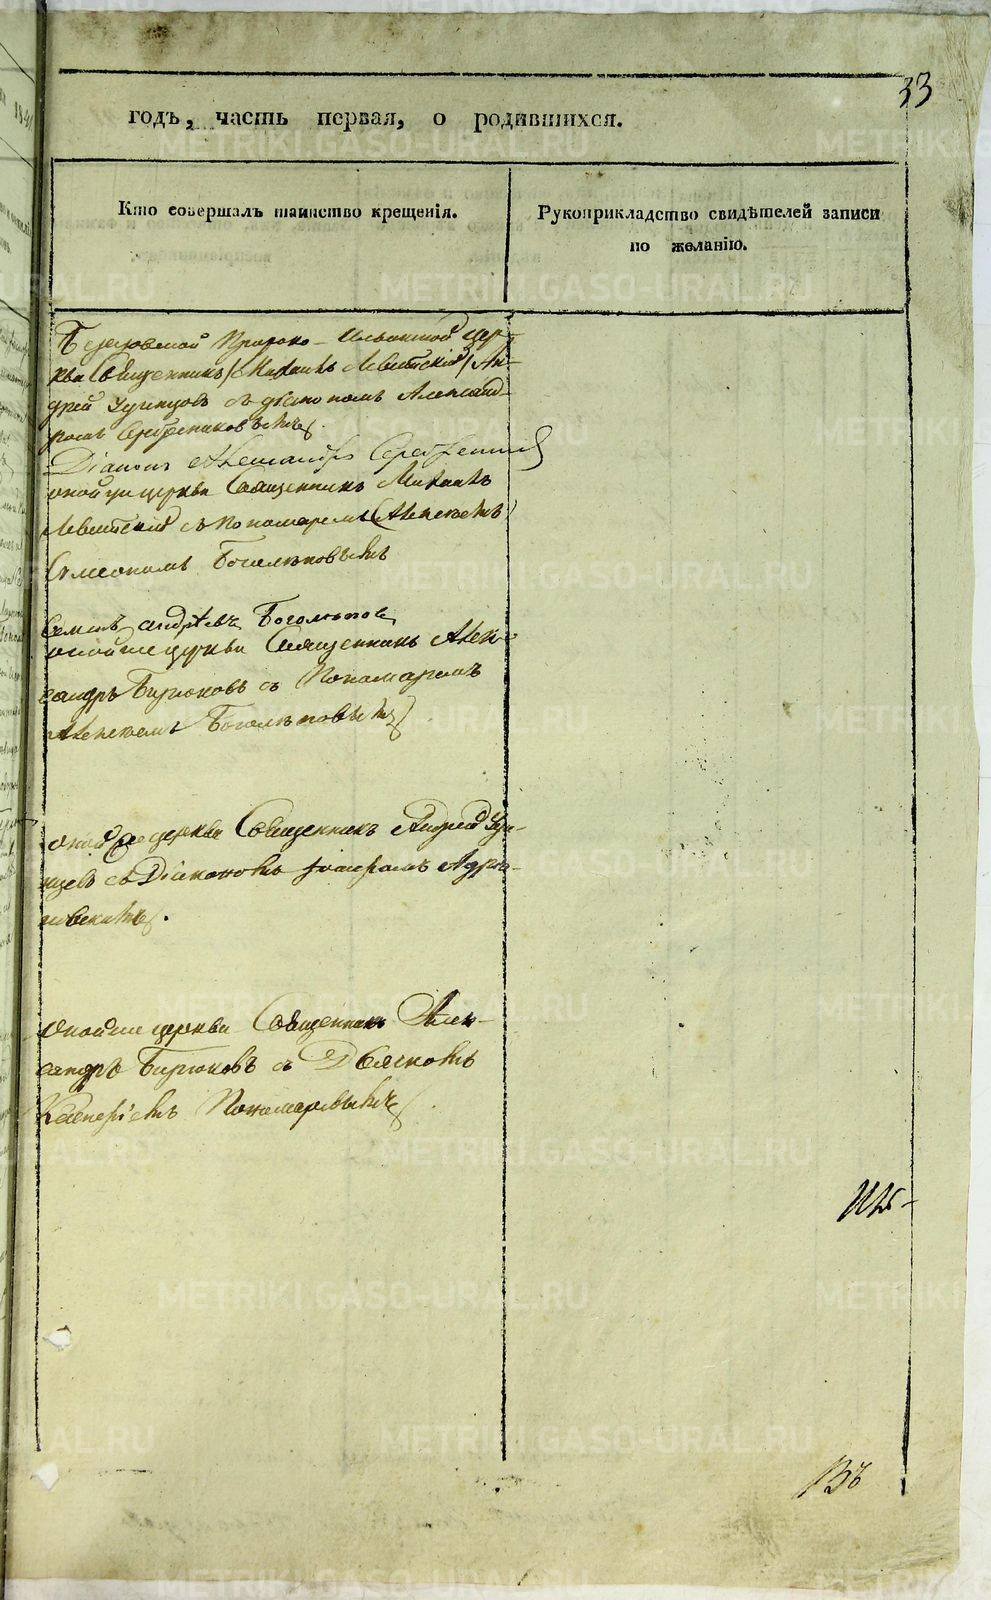 33
годъ, часть первая, о родившихся.
Кто совершалъ таинство крещенія.
Рукоприкладство свидѣтелей записи
по желанію.
Пророко-Ильинской Цер-
кви Священникъ (Михаилъ Левитскій) Ан-
дрей Удинцовъ съ діакономъ Александ-
ромъ Серебрениковымъ.
Діаконъ Александръ
оной же церкви Священникъ Михаилъ
Левитскій съ Пономаремъ (Алексеемъ)
Симеономъ Боголеповымъ
Семенъ Андрѣевъ Боголепов
оной же церкви Священникъ Алек-
сандръ Бирюковъ съ Пономаремъ
Алексеемъ Боголеповымъ
оной же церкви Священникъ Андрей Уди-
нцев съ Діакономъ
оной же церкви Священникъ Алек-
сандръ Бирюковъ съ Дьячкомъ
Пономаревымъ
METRIKI.GASO-URAL.RU